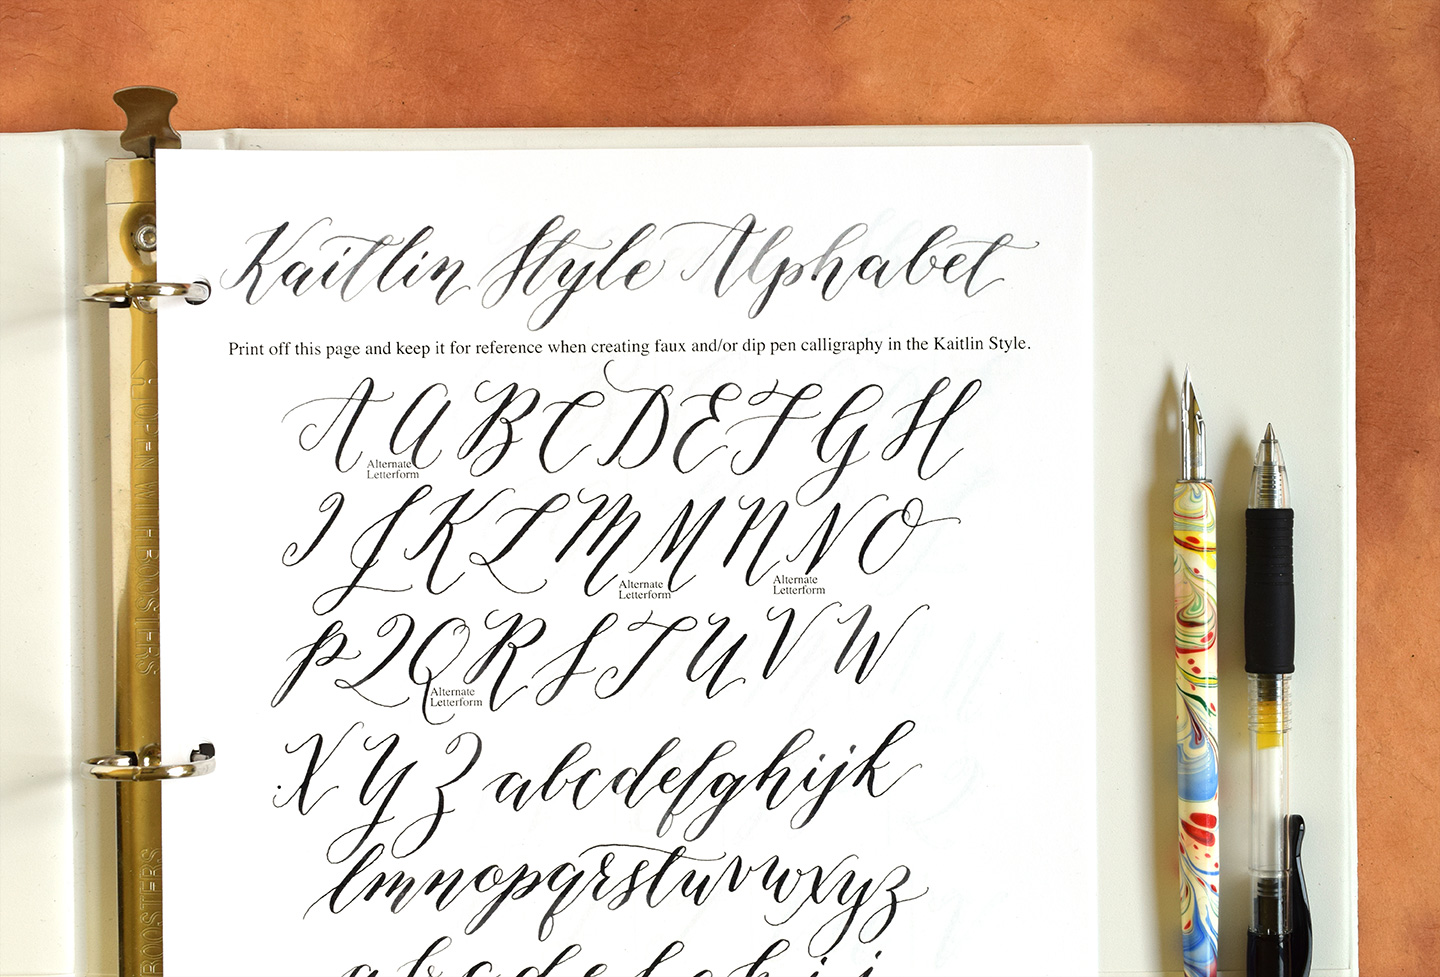 Kaitlin Style Alphabet
Print off this page and keep it for reference when creating faux and/or dip pen calligraphy in the Kaitlin Style.
A A B C D E F G H
Alternate
Letterform
I J K L M M N N O
Alternate
Letterform
Alternate
Letterform
P Q Q R S T U V W
Alternate
Letterform
X Y Z abcdefghijk
lmnopqrstuvwxyz
a b c d e f g h i j
OPEN WITH BOOSTERS
BOOSTERS